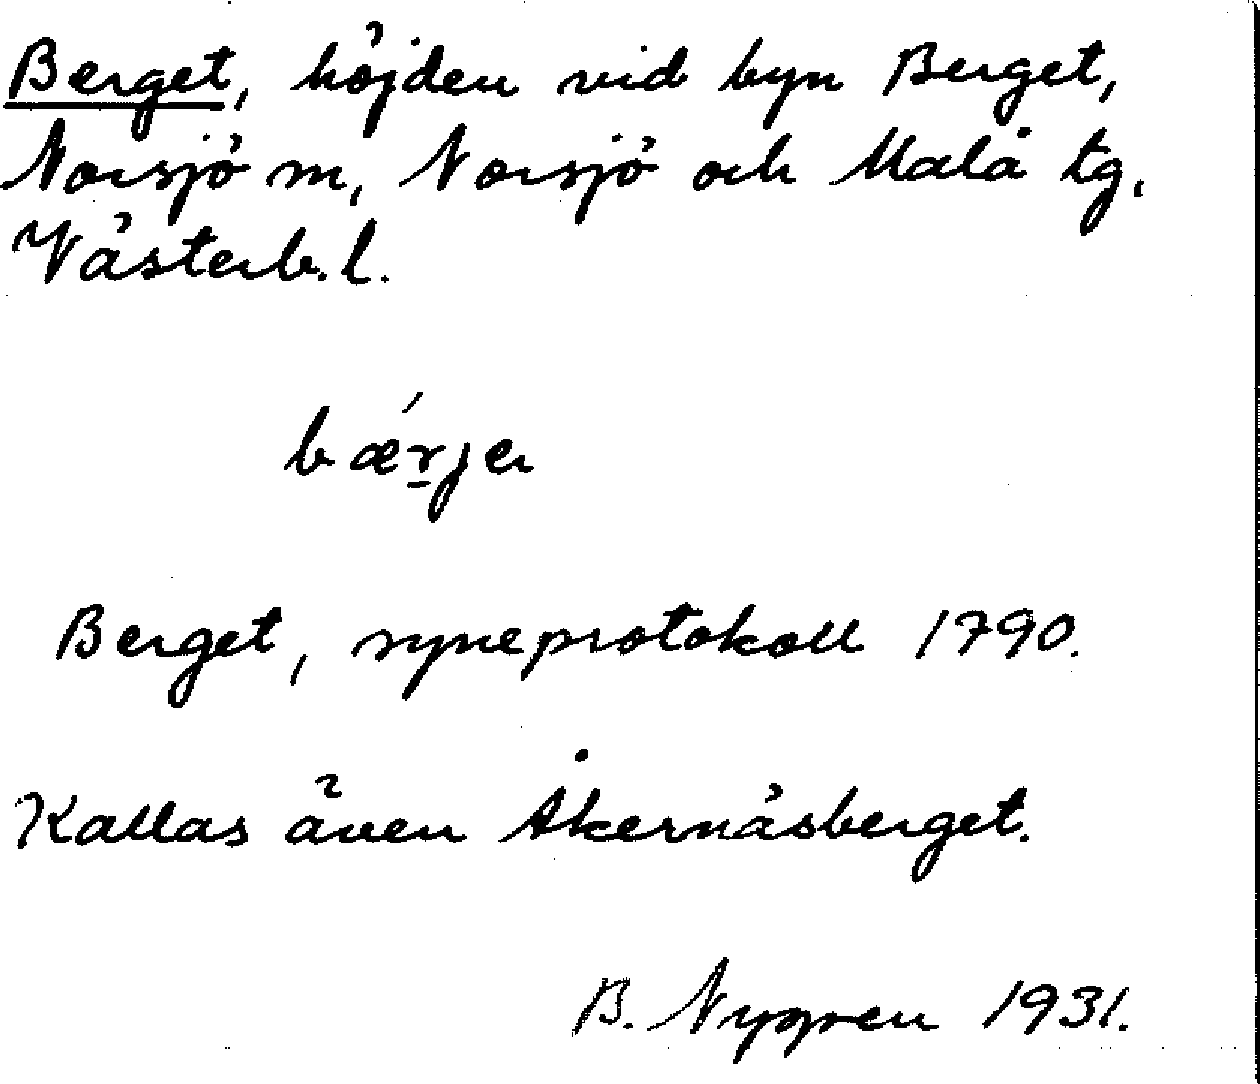 Berget, höjden vid byn Berget,
Norsjö m, Norsjö och Malå tg,
Västerb. l.
bǽr̲jer
Berget, syneprotokoll 1790.
Kallas även Åkernäsberget.
B. Nygren 1931.